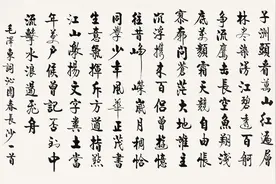 子洲頭看萬山紅遍層
林盡染漫江碧透百舸
争流鷹擊長空魚翔淺
底萬類霜天競自由悵
寥廓問蒼茫大地誰主
沉浮攜來百侣曾遊憶
往昔崢嶸歲月稠恰
同學少年風華正茂書
生意氣揮斥方遒指點
江山激揚文字糞土當
年萬户侯曾記否到中
流擊水浪遏飛舟
毛澤東詞沁園春長沙一首